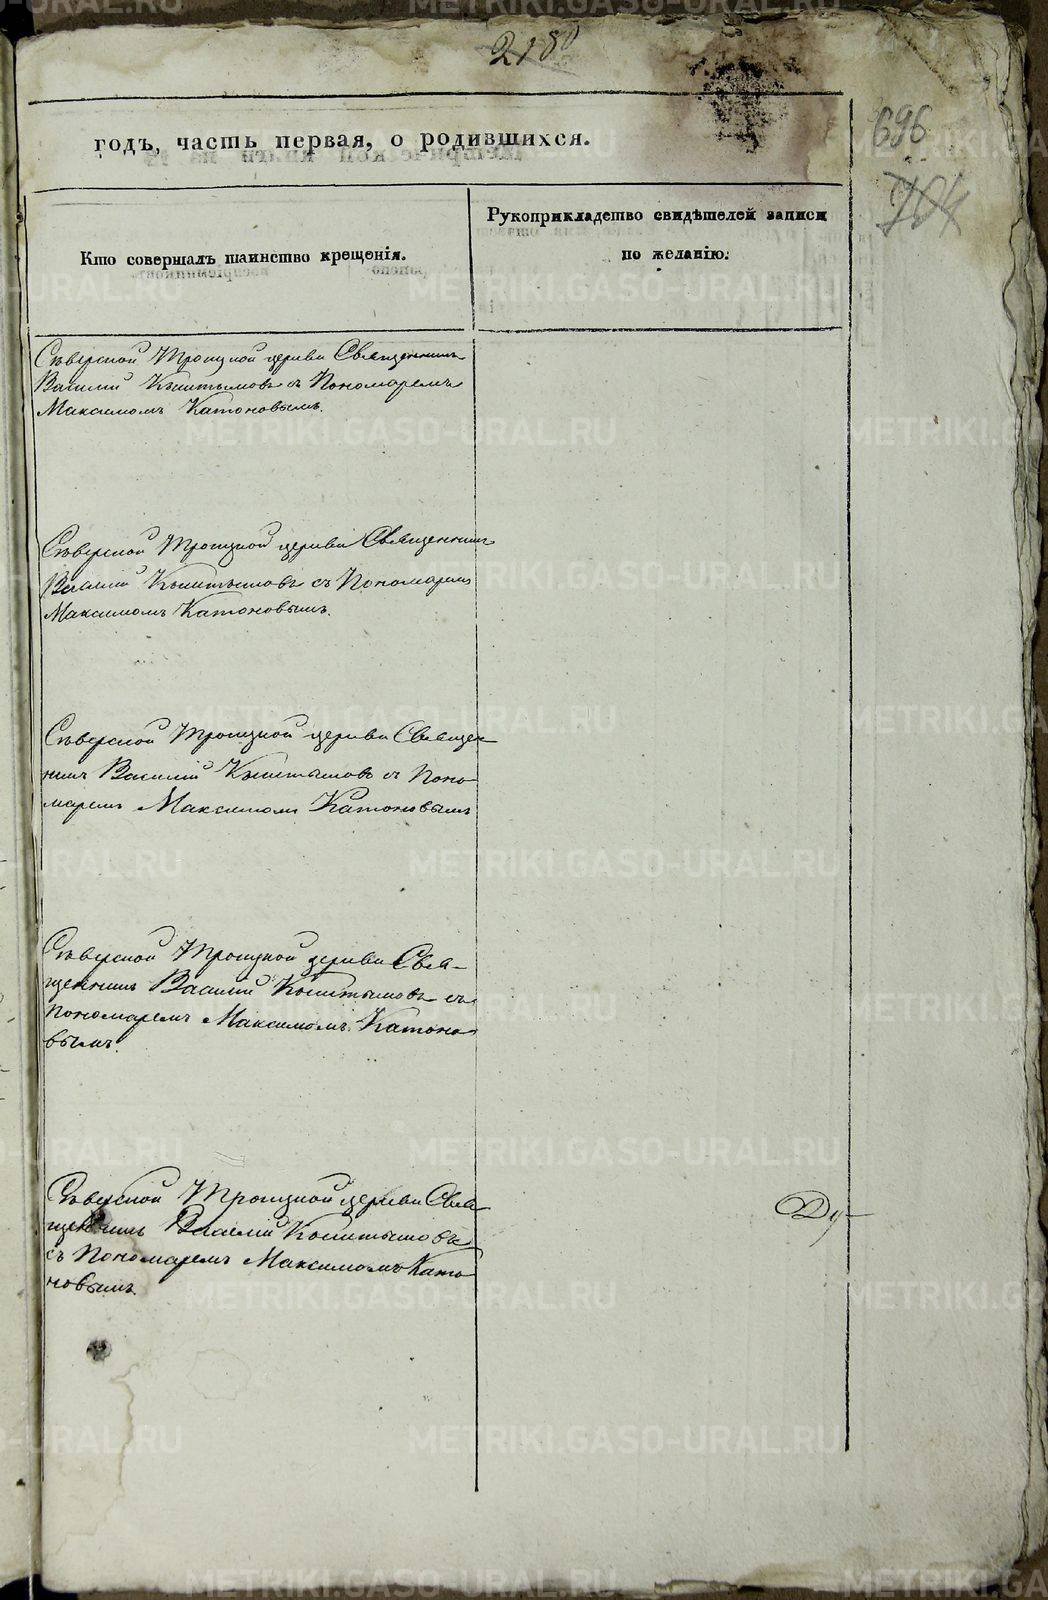 2180
696
704
годъ, часть первая, о родившихся.
Кто совершалъ таинство крещенія.
Рукоприкладство свидѣтелей записи
по желанію.
Сѣверской Троицкой церкви Священникъ
Василій Кыштымовъ съ Пономаремъ
Максимомъ Катоновымъ.
Сѣверской Троицкой церкви Священникъ
Василій Кыштымовъ съ Пономаремъ
Максимомъ Катоновымъ.
Сѣверской Троицкой церкви Священ
никъ Василій Кыштымовъ съ Поно
маремъ Максимомъ Катоновымъ
Сѣверской Троицкой церкви Свя-
щенникъ Василій Кыштымовъ съ
Пономаремъ Максимомъ Катоно
вымъ.
Сѣверской Троицкой церкви Свя
щенникъ Василій Кыштымовъ
съ Пономаремъ Максимомъ Като
новымъ.
Ду-
METRIKI.GASO-URAL.RU